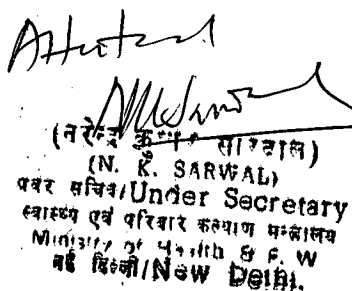 Attested
(नरेन्द्र कुमार सारवाल)
(N. K. SARWAL)
अवर सचिव/Under Secretary
स्वास्थ्य एवं परिवार कल्याण मन्त्रालय
Ministry of Health & F. W
नई दिल्ली/New Delhi.